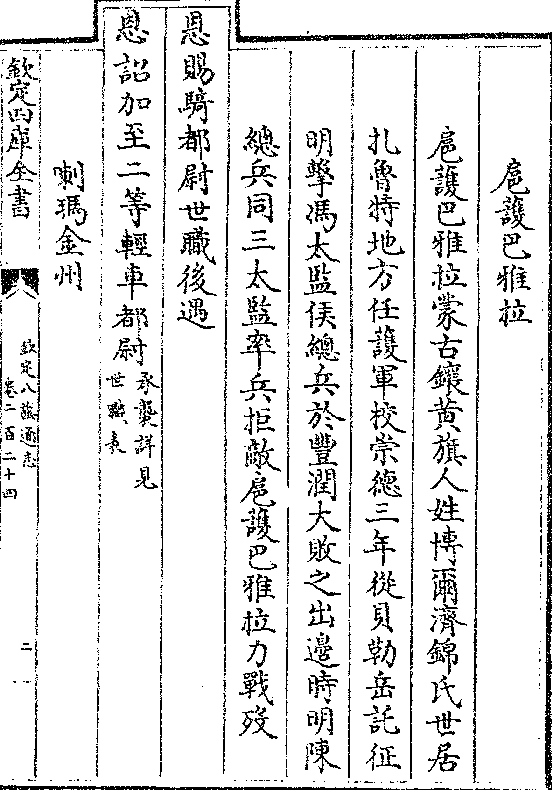 扈護巴雅拉
扈護巴雅拉蒙古鑲黄旗人姓博爾濟錦氏世居
扎魯特地方任護軍校崇德三年從貝勒岳託征
明擊馮太監侯總兵於豐潤大敗之出邊時明陳
總兵同三太監率兵拒敵扈護巴雅拉力戰歿
恩賜騎都尉世職後遇
恩詔加至二等輕車都尉承襲詳見世職表
喇瑪金州
欽定四庫全書
欽定八旗通志
卷二百二十四
二